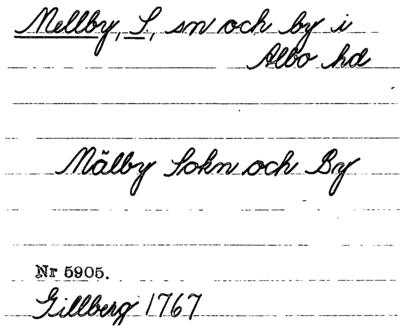 Mellby, S., sn och by i
Albo hd
Mälby Sokn och By
Nr 5905.
Gillberg 1767